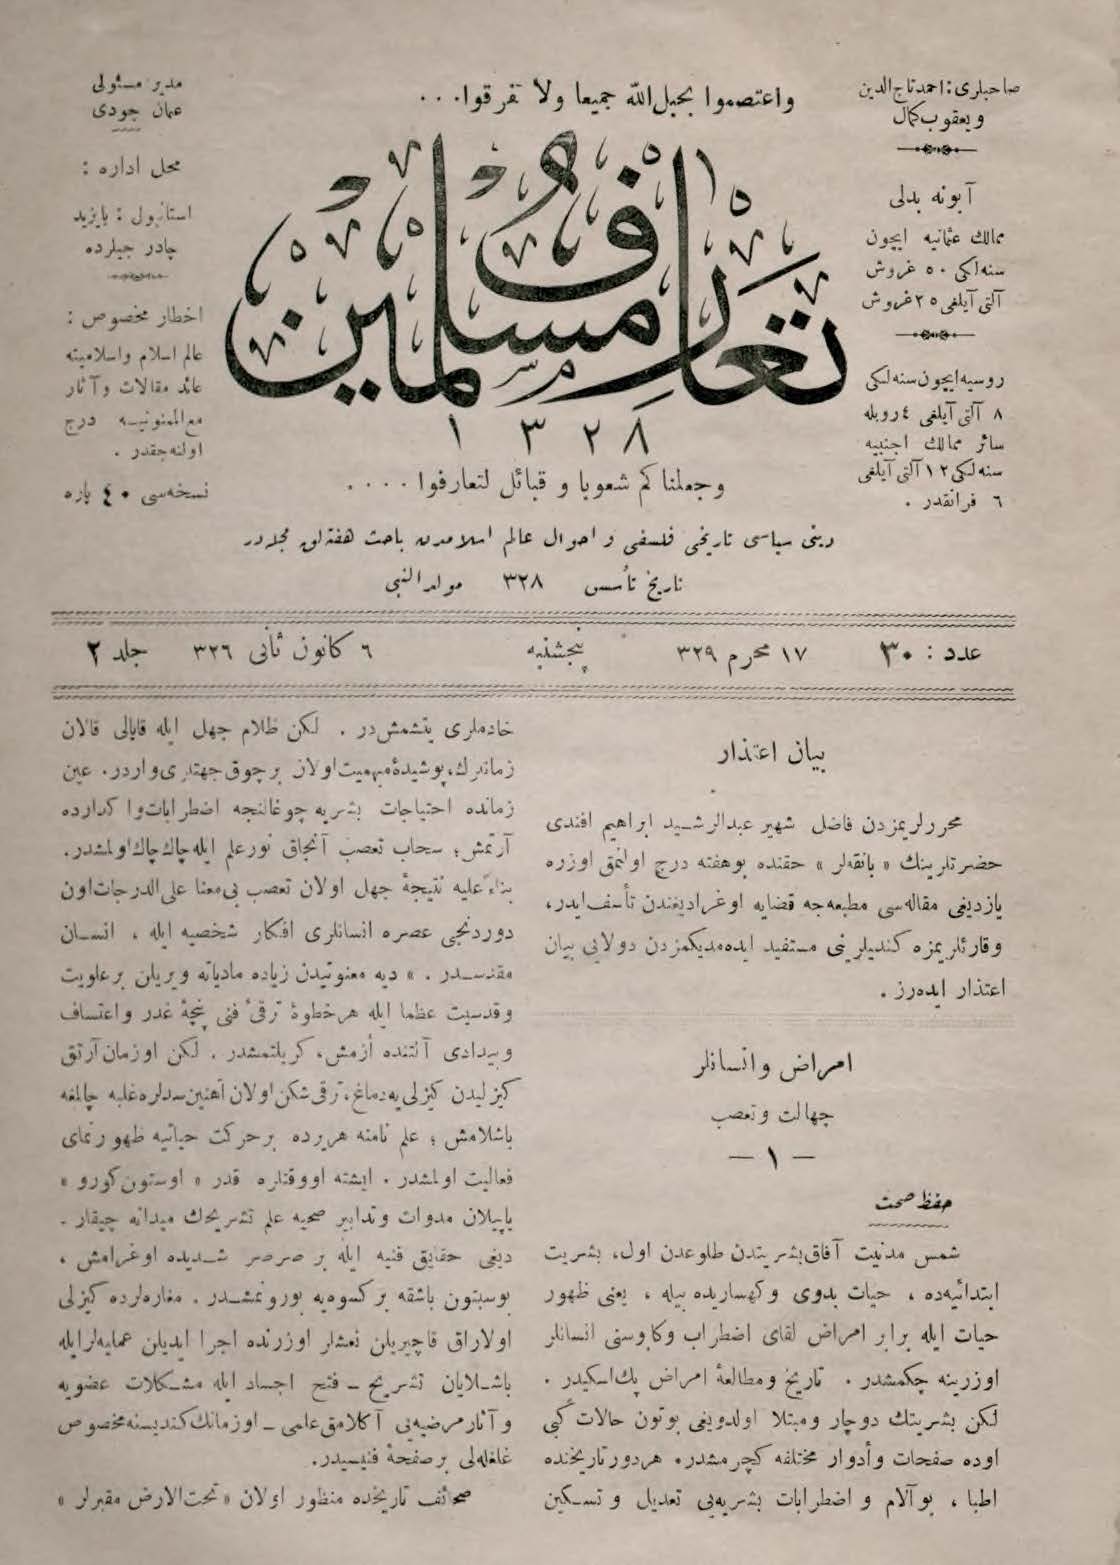 واعتصموا بحبل الله جميعا ولا تفرقوا...
صاحبلری : احمد تاج الدین
و یعقوب کمال
آبونه بدلی
ممالك عثمانیه ایچون
سنه لکی ٥٠ غروش
آلتی آیلغی ٢٥ غروش
روسیه ایچون سنه لکی
٨ آلتی آیلغی ٤ روبله
سائر ممالك اجنبیه
سنه لکی ١٢ آلتی آیلغی
٦ فرانقدر .
تعارف مسلمین
١٣٢٨
وجعلناكم شعوبا و قبائل لتعارفوا ....
مدیر مسئولی
عثمان جودی
محل اداره :
استانبول : بایزید
چادر جیلرده
اخطار مخصوص :
عالم اسلام واسلامیته
عائد مقالات و آثار
مع الممنونیـه درج
اولنه جقدر .
نسخه سی ٤٠ پاره
دینی سیاسی تاریخی فلسفی و احوال عالم اسلامدن باحث هفته لق مجله در
تاریخ تأسس ٣٢٨ مولد النبی
عدد : ٣٠
١٧ محرم ٣٢٩
پنجشنبه
٦ کانون ثانی ٣٢٦
جلد ٢
بیان اعتذار
محررلریمزدن فاضل شهیر عبدالرشـید ابراهیم افندی
حضرتلرینك « بانقه لر » حقنده بوهفته درج اولنمق اوزره
یازدیغی مقاله سی مطبعه جه قضایه اوغرادیغندن تأسف ایدر،
وقارئلریمزه کندیلرینی مستفید ایده مدیکمزدن دولایی بیان
اعتذار ایده رز .
امراض وانسانلر
جهالت وتعصب
— ١ —
حفظ صحت
شمس مدنیت آفاق بشریتدن طلوعدن اول، بشریت
ابتدائیه ده ، حیات بدوی وکهساریده بیله ، یعنی ظهور
حیات ایله برابر امراض لقای اضطراب وکابوسنی انسانلر
اوزرینه چکمشدر . تاریخ ومطالعۀ امراض پك اسکیدر .
لکن بشریتك دوچار ومبتلا اولدویغی بوتون حالات کبی
اوده صفحات وأدوار مختلفه کچرمشدر. هردور تاریخنده
اطبا ، بو آلام و اضطرابات بشریه یی تعدیل و تسـکین
خادملری یتشمش در . لکن ظلام جهل ایله قاپالی قالان
زماندرك، پوشیدۀ مبهمیت اولان برچوق جهتلری واردر. عین
زمانده احتیاجات بشریه چوغالنجه اضطرابات و اکدارده
آرتمش ؛ سحاب تعصب آنجاق نورعلم ایله چاك چاك اولمشدر.
بناءً علیه نتیجۀ جهل اولان تعصب بی معنا علی الدرجات اون
دوردنجی عصره انسانلری افکار شخصیه ایله ، انسـان
مقدسـدر . » دیه معنویتدن زیاده مادیاته ویریلن برعلویت
وقدسیت عظما ایله هرخطوۀ ترقیٔ فنی پنجۀ غدر واعتساف
وبیدادی آلتنده أزمش، کریلتمشدر . لکن اوزمان آرتق
کیزلیدن کیزلی یه دماغ، ترقی شکن اولان آهنین سدلره غلبه چالمغه
باشلامش ؛ علم نامنه هریرده برحرکت حیاتیه ظهور نمای
فعالیت اولمشدر . ایشته اووقتلره قدر « اوستون کورو »
یاپیلان مدوات وتدابیر صحیه علم تشریحك میدانه چیقار -
دیغی حقایق فنیه ایله بر صرصر شـدیده اوغرامش ،
بوسبتون باشقه برکسوه یه بورونمشـدر . مغاره لرده کیزلی
اولاراق قاچیریلن نعشلر اوزرنده اجرا ایدیلن عملیه لر ایله
باشـلایان تشریح — فتح اجساد ایله مشـکلات عضویه
و آثار مرضیه یی آکلامق علمی — اوزمانك کندیسنه مخصوص
غلغله لی برصفحۀ فنیسیدر.
صحائف تاریخده منظور اولان « تحت الارض مقبرلر »